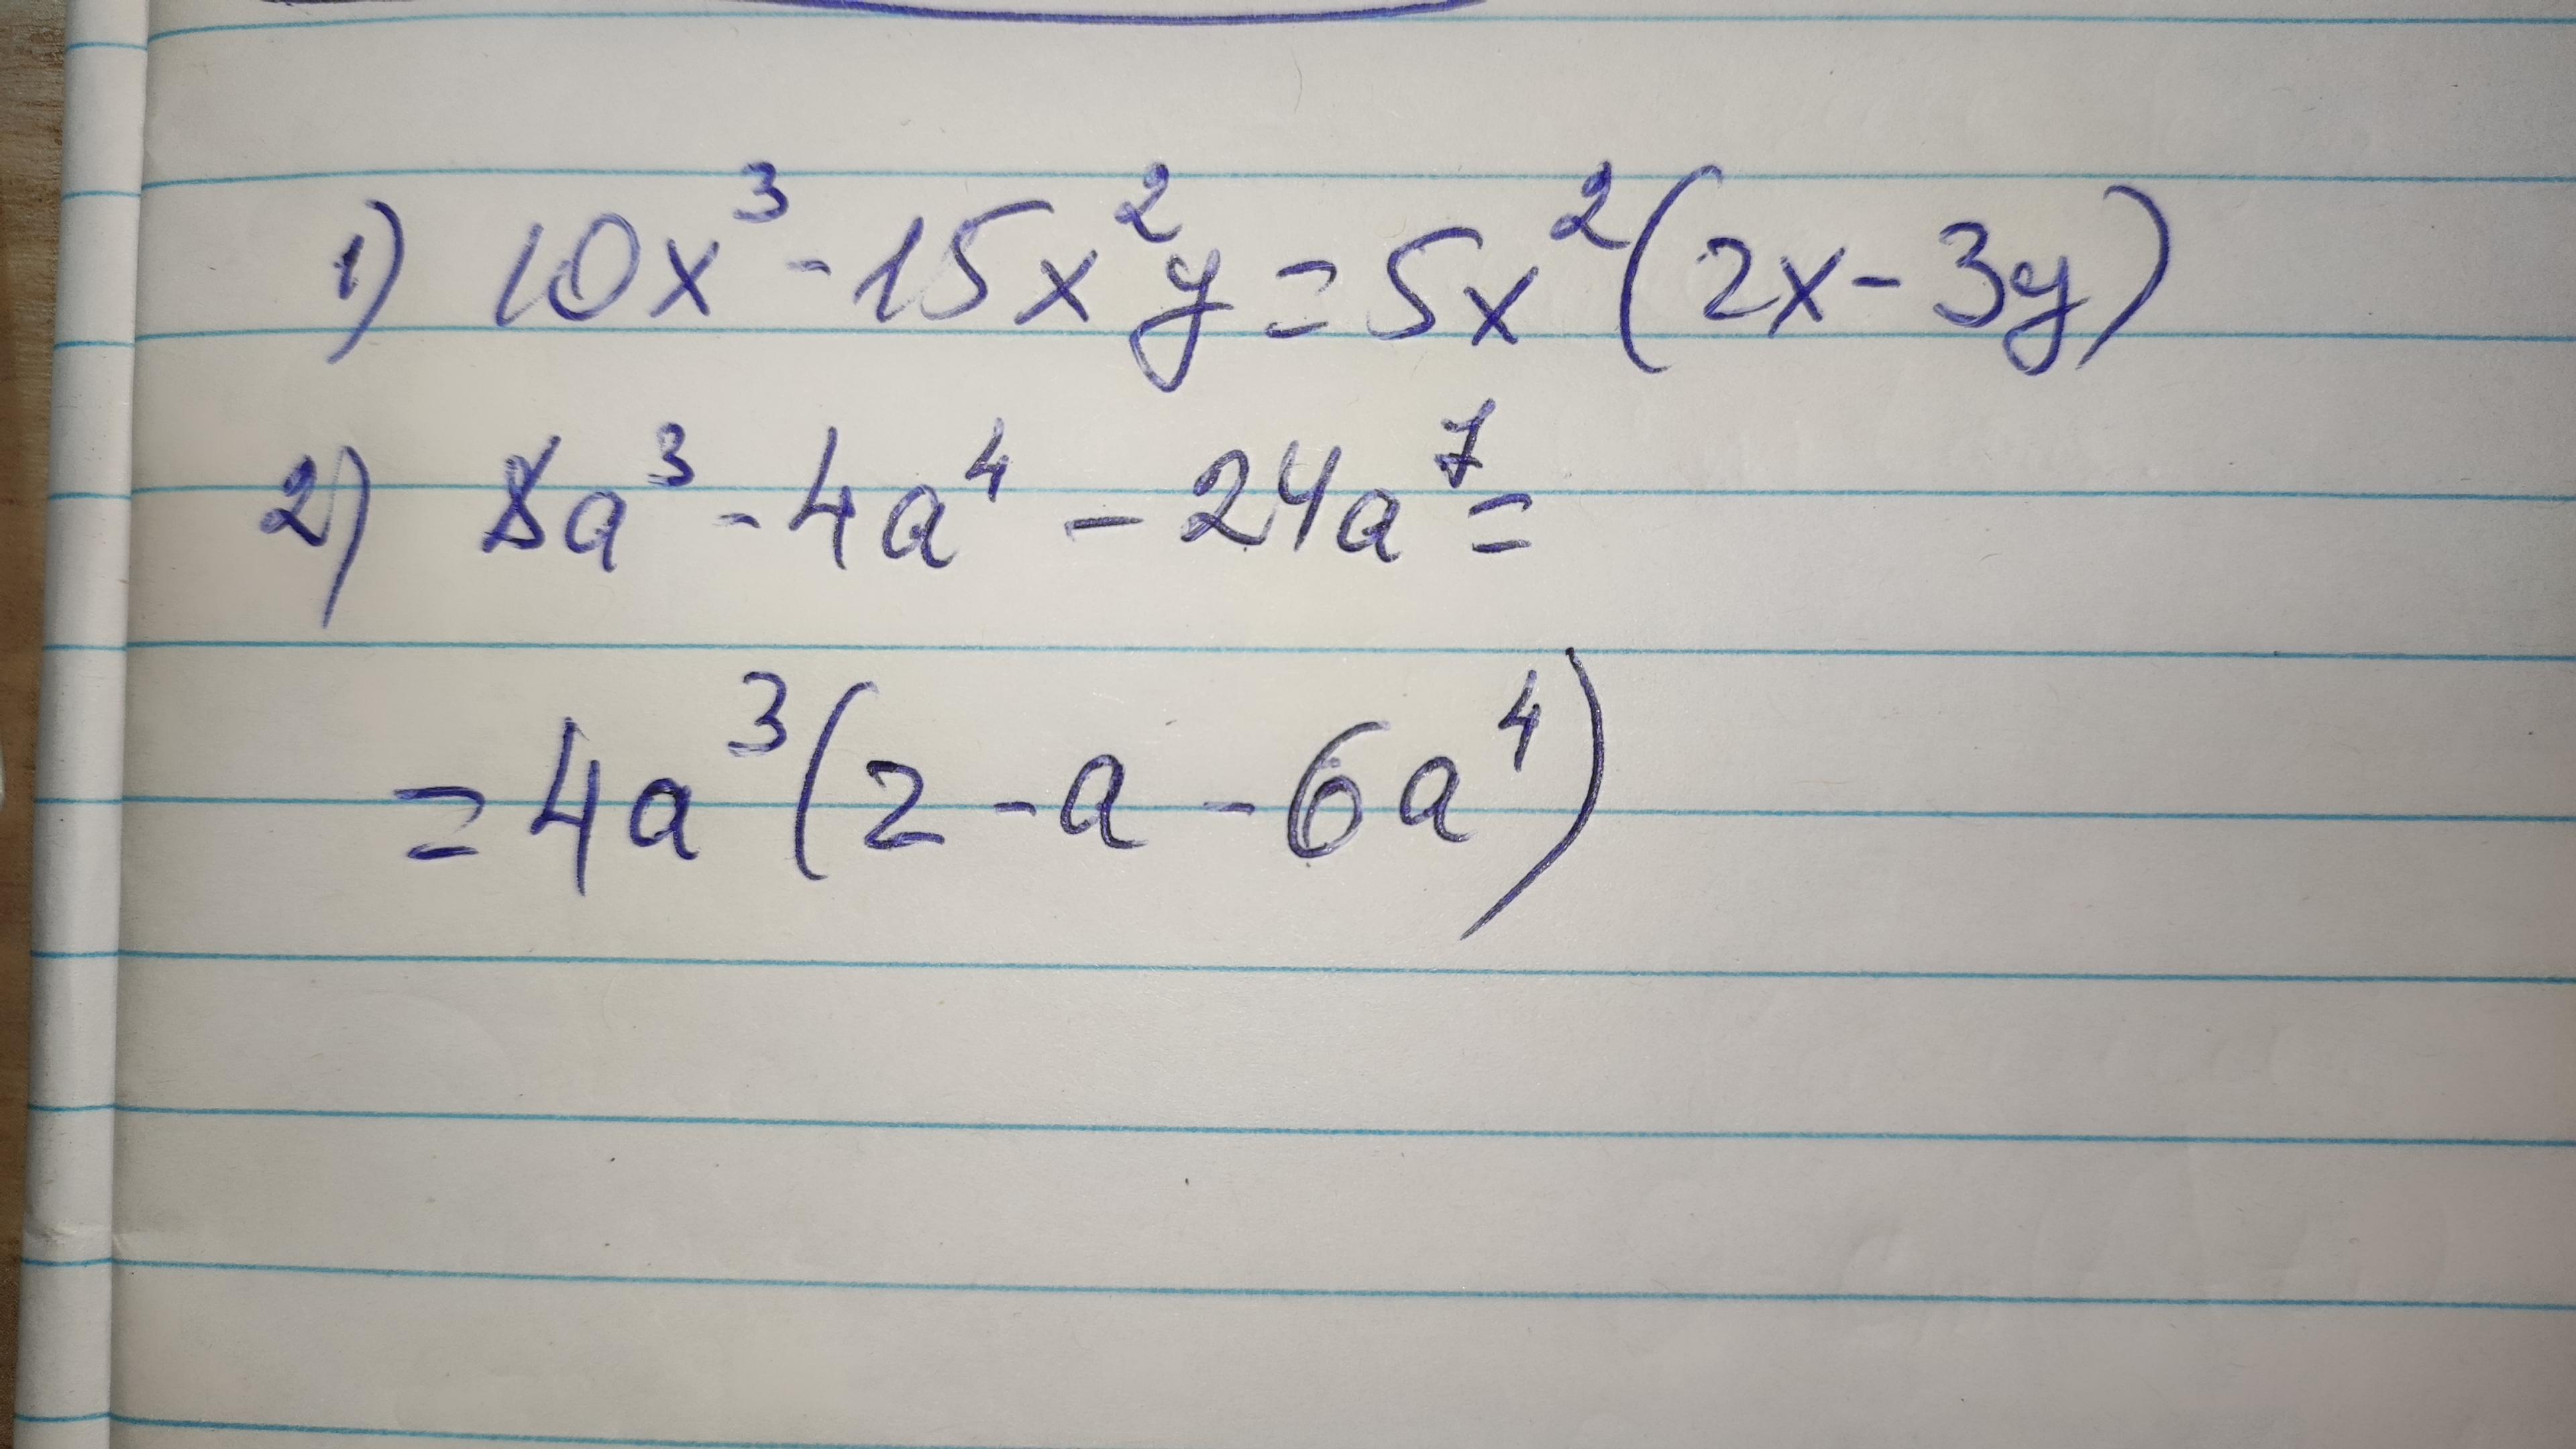 1) 10x³ - 15x²y = 5x²(2x - 3y)
2) 8a³ - 4a⁴ - 24a⁷ =
= 4a³(2 - a - 6a⁴)